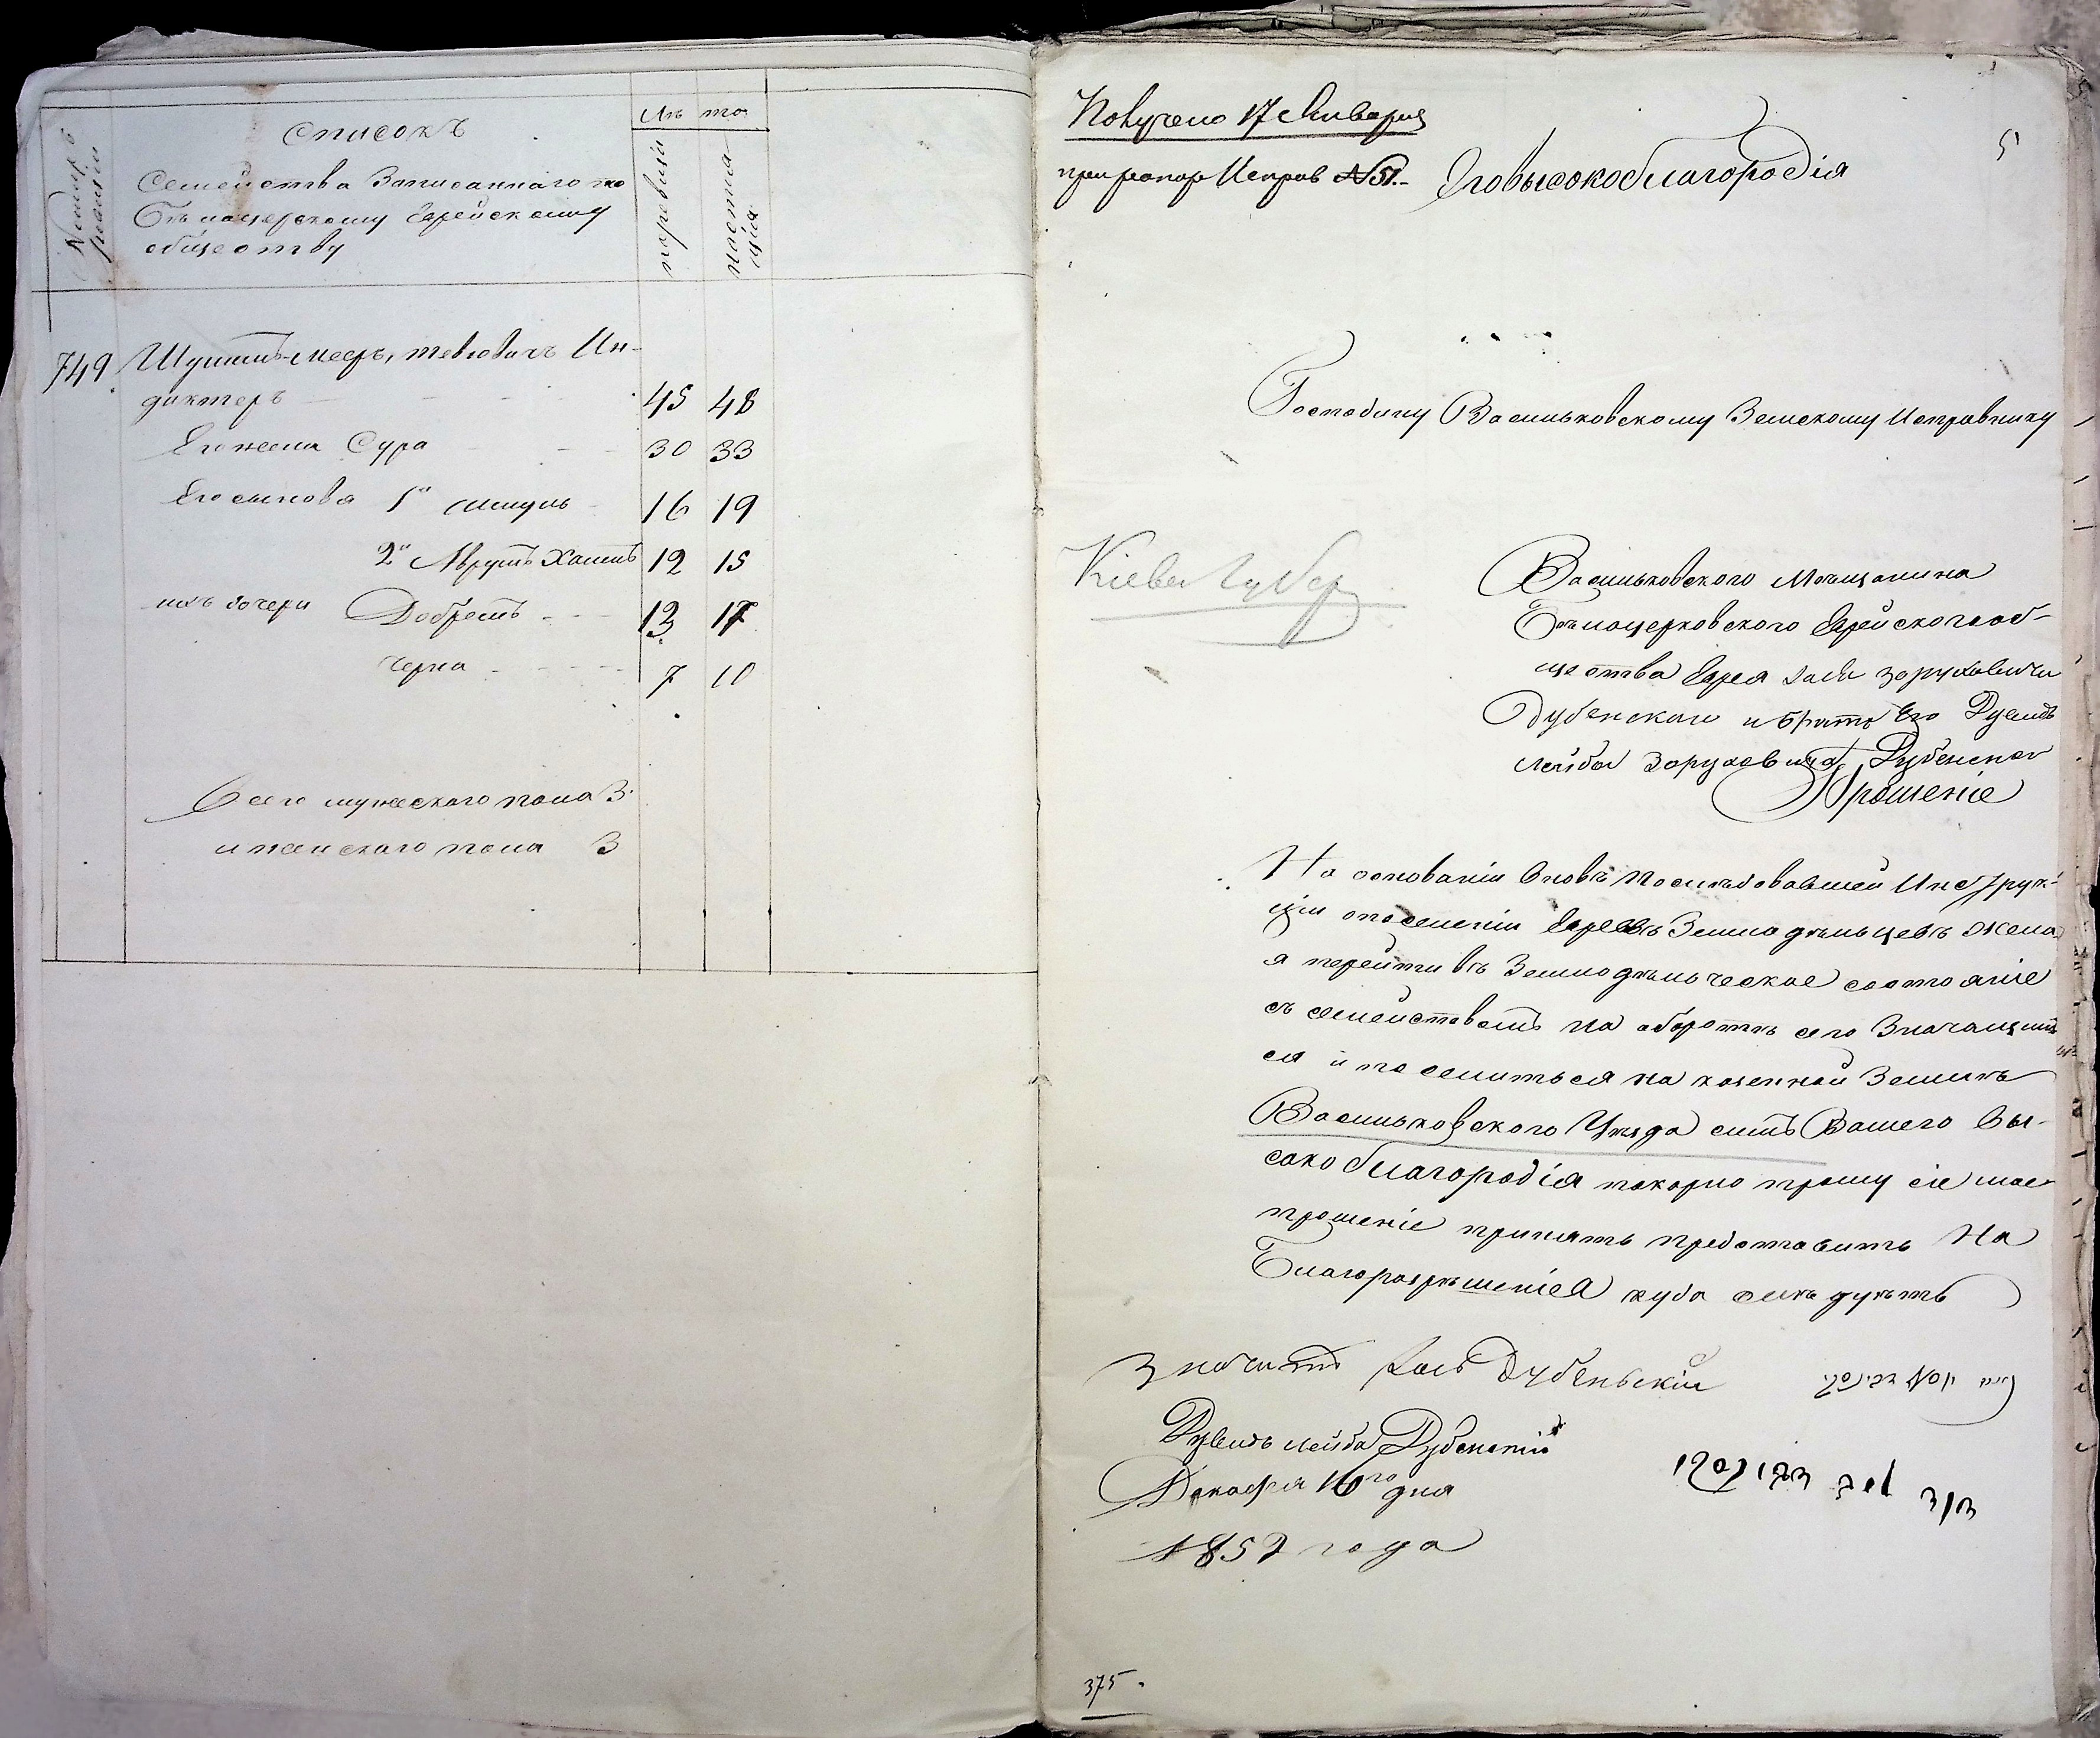 Списокъ
Семейства Записаннаго по
Бѣлоцерскому Еврейскому
обществу
Лѣ та
по ревизіи
настоя
щія
749 Шулимъ-меер, тевіовичъ Ин-
диктеръ 45 48
Его жена Сура 30 33
Его сынова 1й шмуль 16 19
2й Аврумъ Хаимъ 12 15
ихъ дочери Добресъ 13 17
Черна 7 10
Всего мужескаго пола 3
и женскаго пола 3
Получено 17 Января
при рапор Исправ №51.
Его высокоблагородія
5
Господину Васильковскому Земскому Исправнику
Кіевск Губер
Васильковского Мѣщанина
Бѣлоцерковского Еврейского об-
щества Еврея Зоруховича
Дубенскаго и брата Его
лейба Зоруховича Дубенского
Прошеніе
На основаніи вновь последовавшей Инструк-
ціи о поселеніи Евреевъ Земледѣльцевъ желая
перейти въ Земледѣльческое состояніе
съ семействомъ на оборотѣ сего Значащим
ся и поселиться на казенной Землѣ
Васильковского Уѣзда симъ Вашего Вы-
сокоблагородія покорно прошу сіе мое
прошеніе принять предоставить На
Благоразрѣшеніе куда слѣдуетъ
Дубеньскій
лейба Дубенскій
Декабря 16го дня
1852 года
375.